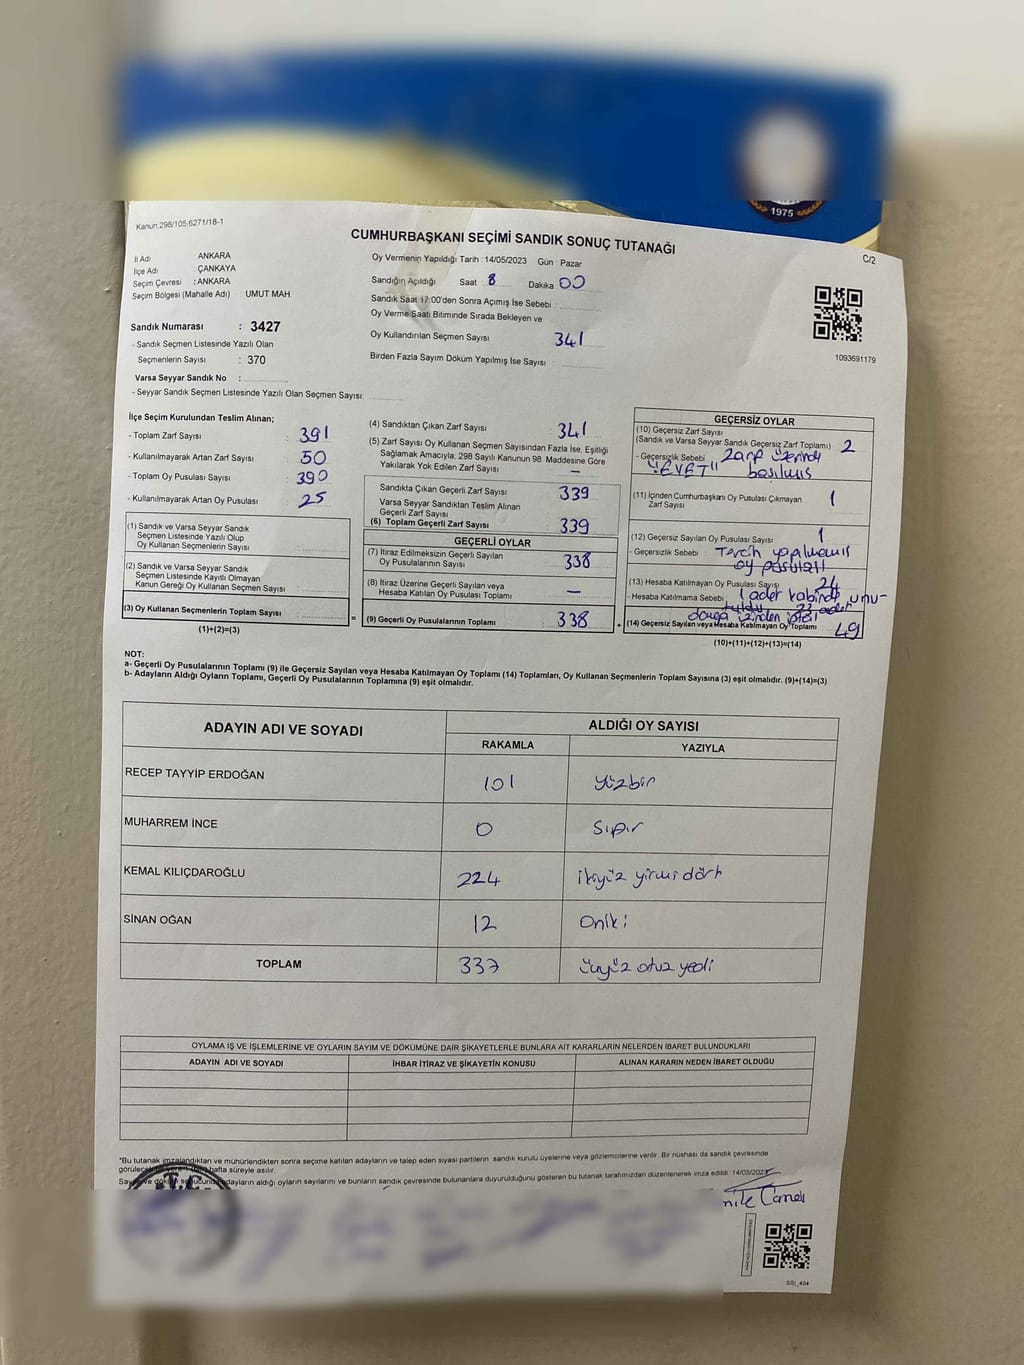 1975
Kanun 298/105,6271/18-1
CUMHURBAŞKANI SEÇİMİ SANDIK SONUÇ TUTANAĞI
C/2
İl Adı ANKARA
İlçe Adı ÇANKAYA
Seçim Çevresi : ANKARA
Seçim Bölgesi (Mahalle Adı) : UMUT MAH.
Oy Vermenin Yapıldığı Tarih : 14/05/2023 Gün : Pazar
Sandığın Açıldığı Saat 8 Dakika 00
Sandık Saat 17:00'den Sonra Açımış İse Sebebi :
Oy Verme Saati Bitiminde Sırada Bekleyen ve
Oy Kullandırılan Seçmen Sayısı 341
Birden Fazla Sayım Döküm Yapılmış İse Sayısı :
1093691179
Sandık Numarası : 3427
- Sandık Seçmen Listesinde Yazılı Olan
Seçmenlerin Sayısı : 370
Varsa Seyyar Sandık No :
- Seyyar Sandık Seçmen Listesinde Yazılı Olan Seçmen Sayısı:
İlçe Seçim Kurulundan Teslim Alınan;
- Toplam Zarf Sayısı : 391
- Kullanılmayarak Artan Zarf Sayısı : 50
- Toplam Oy Pusulası : 390
- Kullanılmayarak Artan Oy Pusulası : 25
(1) Sandık ve Varsa Seyyar Sandık
Seçmen Listesinde Yazılı Olup
Oy Kullanan Seçmenlerin Sayısı :
(2) Sandık ve Varsa Seyyar Sandık
Seçmen Listesinde Kayıtlı Olmayan
Kanun Gereği Oy Kullanan Seçmen Sayısı :
(3) Oy Kullanan Seçmenlerin Toplam Sayısı :
(1)+(2)=(3)
=
(4) Sandıktan Çıkan Zarf Sayısı : 341
(5) Zarf Sayısı Oy Kullanan Seçmen Sayısından Fazla İse, Eşitliği
Sağlamak Amacıyla, 298 Sayılı Kanunun 98. Maddesine Göre
Yakılarak Yok Edilen Zarf Sayısı : —
Sandıkta Çıkan Geçerli Zarf Sayısı : 339
Varsa Seyyar Sandıktan Teslim Alınan
Geçerli Zarf Sayısı :
(6) Toplam Geçerli Zarf Sayısı : 339
GEÇERLİ OYLAR
(7) İtiraz Edilmeksizin Geçerli Sayılan
Oy Pusulalarının Sayısı : 338
(8) İtiraz Üzerine Geçerli Sayılan veya
Hesaba Katılan Oy Pusulası Toplamı : —
(9) Geçerli Oy Pusulalarının Toplamı : 338
+
GEÇERSİZ OYLAR
(10) Geçersiz Zarf Sayısı
(Sandık ve Varsa Seyyar Sandık Geçersiz Zarf Toplamı) : 2
- Geçersizlik Sebebi : Zarf üzerinde
"EVET" basılmış
(11) İçinden Cumhurbaşkanı Oy Pusulası Çıkmayan
Zarf Sayısı : 1
(12) Geçersiz Sayılan Oy Pusulası Sayısı : 1
- Geçersizlik Sebebi : Tercih yapılmamış
oy pusulası
(13) Hesaba Katılmayan Oy Pusulası Sayısı : 24
- Hesaba Katılmama Sebebi : 1 adet kabinde unu-
tuldu, 23 adet
damga izinden iptal
(14) Geçersiz Sayılan veya Hesaba Katılmayan Oy Toplamı : 49
(10)+(11)+(12)+(13)=(14)
NOT:
a- Geçerli Oy Pusulalarının Toplamı (9) ile Geçersiz Sayılan veya Hesaba Katılmayan Oy Toplamı (14) Toplamları, Oy Kullanan Seçmenlerin Toplam Sayısına (3) eşit olmalıdır. (9)+(14)=(3)
b- Adayların Aldığı Oyların Toplamı, Geçerli Oy Pusulalarının Toplamına (9) eşit olmalıdır.
ADAYIN ADI VE SOYADI ALDIĞI OY SAYISI
RAKAMLA YAZIYLA
RECEP TAYYİP ERDOĞAN 101 yüzbir
MUHARREM İNCE 0 Sıfır
KEMAL KILIÇDAROĞLU 224 ikiyüz yirmi dört
SİNAN OĞAN 12 Oniki
TOPLAM 337 üçyüz otuz yedi
OYLAMA İŞ VE İŞLEMLERİNE VE OYLARIN SAYIM VE DÖKÜMÜNE DAİR ŞİKAYETLERLE BUNLARA AİT KARARLARIN NELERDEN İBARET BULUNDUKLARI
ADAYIN ADI VE SOYADI İHBAR İTİRAZ VE ŞİKAYETİN KONUSU ALINAN KARARIN NEDEN İBARET OLDUĞU
*Bu tutanak imzalandıktan ve mühürlendikten sonra seçime katılan adayların ve talep eden siyasi partilerin sandık kurulu üyelerine veya gözlemcilerine verilir. Bir nüshası da sandık çevresinde
hafta süreyle asılır.
adayların aldığı oyların sayılarını ve bunların sandık çevresinde bulunanlara duyurulduğunu gösteren bu tutanak tarafımızdan düzenlenerek imza edildi. 14/05/2023
SSI_404